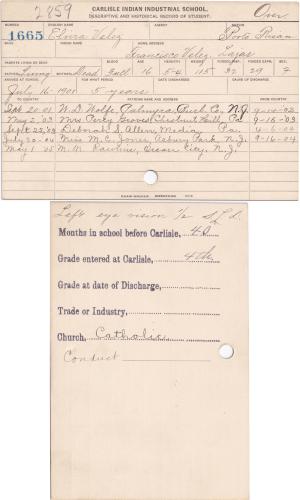 2459
CARLISLE INDIAN INDUSTRIAL SCHOOL.
DESCRIPTIVE AND HISTORICAL RECORD OF STUDENT.
Over
NUMBER ENGLISH NAME AGENCY NATION
1665 Elvira Velez Porto Rican
INDIAN NAME HOME ADDRESS
Francisco Velez, Lares
PARENTS LIVING OR DEAD BLOOD AGE HEIGHT WEIGHT FORCED INSP. FORCED EXPR. SEX
FATHER Living MOTHER Dead Full 16 5-4 115 32 29 F
ARRIVED AT SCHOOL FOR WHAT PERIOD DATE DISCHARGED CAUSE OF DISCHARGE
July 16-1901 5-years
TO COUNTRY PATRONS NAME AND ADDRESS FROM COUNTRY
Sept 20-01 W. D. Wolfe, Palmyra, Burl. Co. N.J. 9-14-02
May 2, 03 Mrs Percy Groves, Chestnut Hill, Pa 9-16-03
Sept 25, 03 Deborah S. Allen, Media, Pa. 4-6-04
July 20-04 Miss M. E. Jones, Asbury Park N.J. 9-16-04
May 1 05 M. M. Ocean City, N.J.
Left eye vision 1/2
Months in school before Carlisle, 40
Grade entered at Carlisle, 4th
Grade at date of Discharge,
Trade or Industry,
Church, Catholic
Conduct